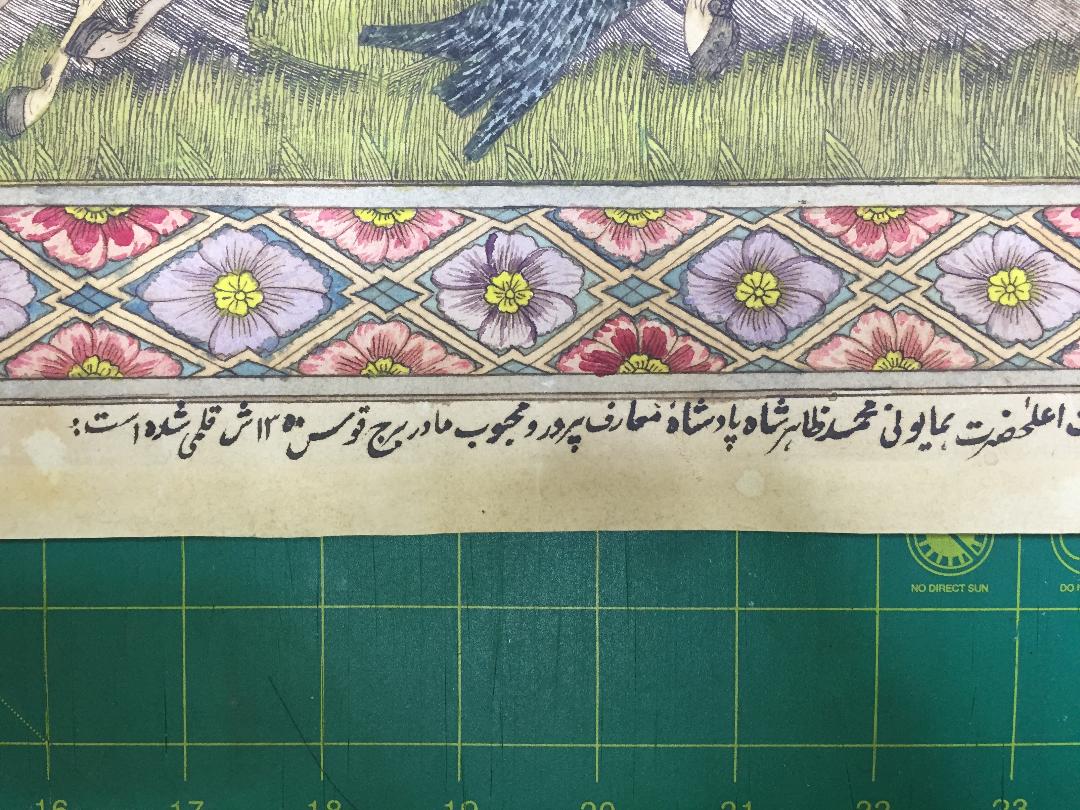 اعلیحضرت همایونی محمدظاهر شاه پادشاهٔ معارف پرور و محبوب ما در برج قوس ش قلمی شده است:
NO DIRECT SUN
16 17 18 19 20 21 22 23